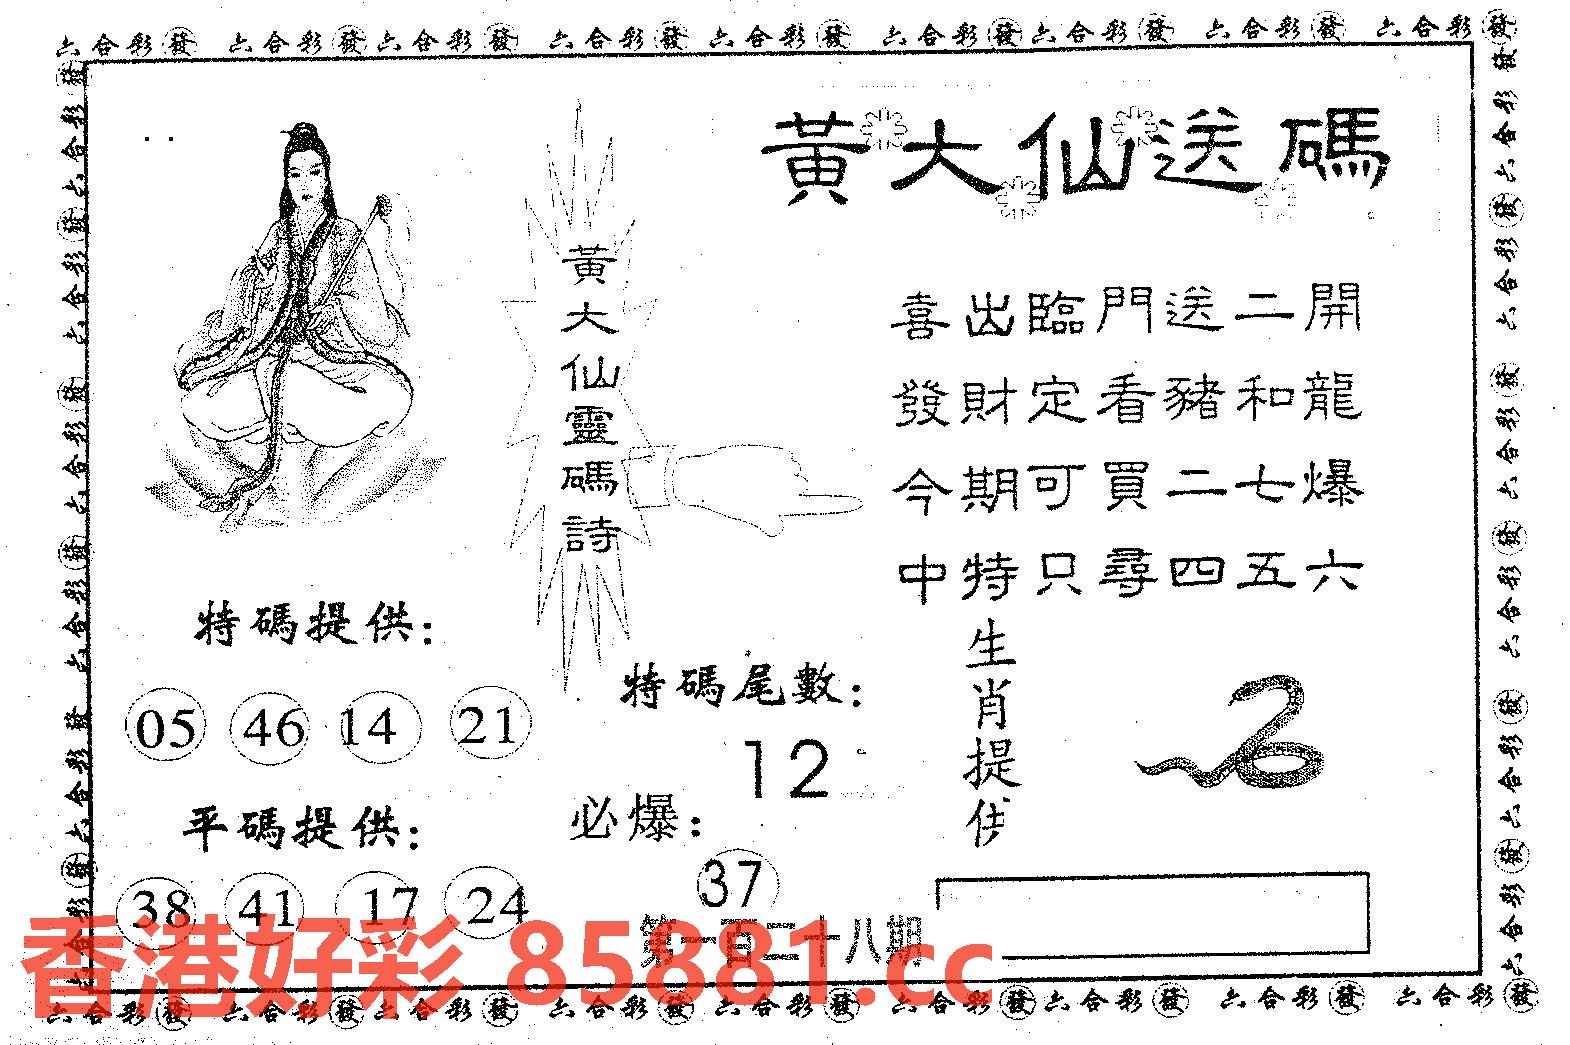 六合彩發 六合彩發 六合彩發 六合彩發 六合彩發 六合彩發 六合彩發 六合彩發 六合彩發
黃大仙送碼
黃大仙靈碼詩
喜出臨門送二開
發財定看豬和龍
今期可買二七爆
中特只尋四五六
特碼提供:
05 46 14 21
平碼提供:
38 41 17 24
特碼尾數:
12
必爆:
37
生肖提供
第一百二十八期
香港好彩 85881.cc
六合彩發 六合彩發 六合彩發 六合彩發 六合彩發 六合彩發 六合彩發 六合彩發 六合彩發